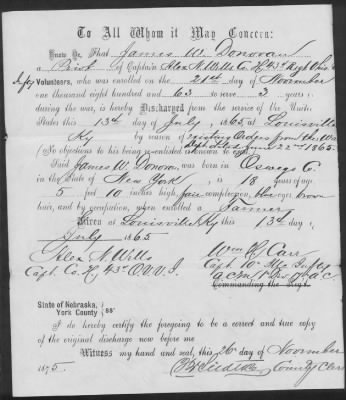 To All Whom it May Concern:
Know Ye, That James W. Donovan
a Privt of Captain Alex N. Wells Co H, 43d Regt Ohio
Infty Volunteers, who was enrolled on the 21st day of November
one thousand eight hundred and 63 to serve 3 years
during the war, is hereby Discharged from the service of the Unite
States this 13th day of July, 1865 at Louisville
Ky by reason of existing Orders from the War
Dept June 22d 1865
(No objections to his being re-enlisted known to
Said James W. Donovan, was born in Oswego Co.
in the State of New York, is 18 years of age
5 feet 10 inches high, fair complexion, blue eyes brown
hair, and by occupation, when enrolled a Farmer
Given at Louisville Ky this 13th day
July 1865
Alex N. Wells Wm H Carr
Capt. Co. H, 43d O.V.V.I. Capt
Commanding the Regt.
State of Nebraska,
York County ss
I do hereby certify the foregoing to be a correct and true copy
of the original discharge now before me
Witness my hand and seal, this 26 day of November
1875. County Clerk